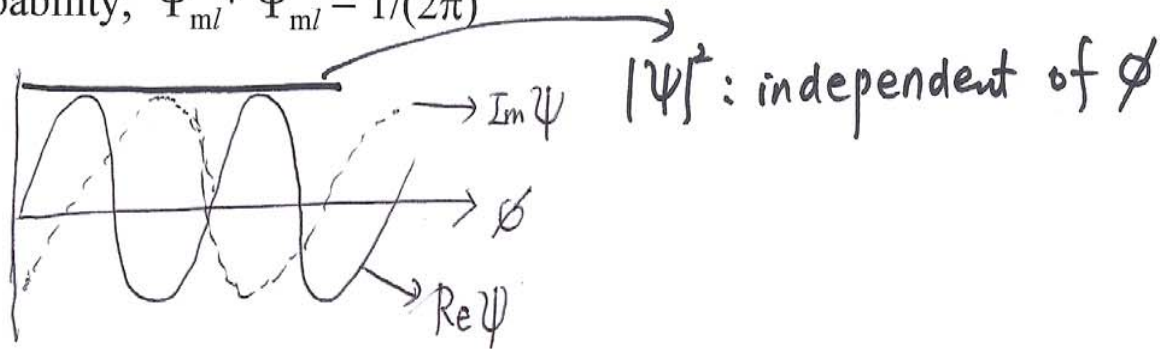 ability, Ψml* Ψml = 1/(2π)
|Ψ|² : independent of ϕ
Im Ψ
ϕ
Re Ψ